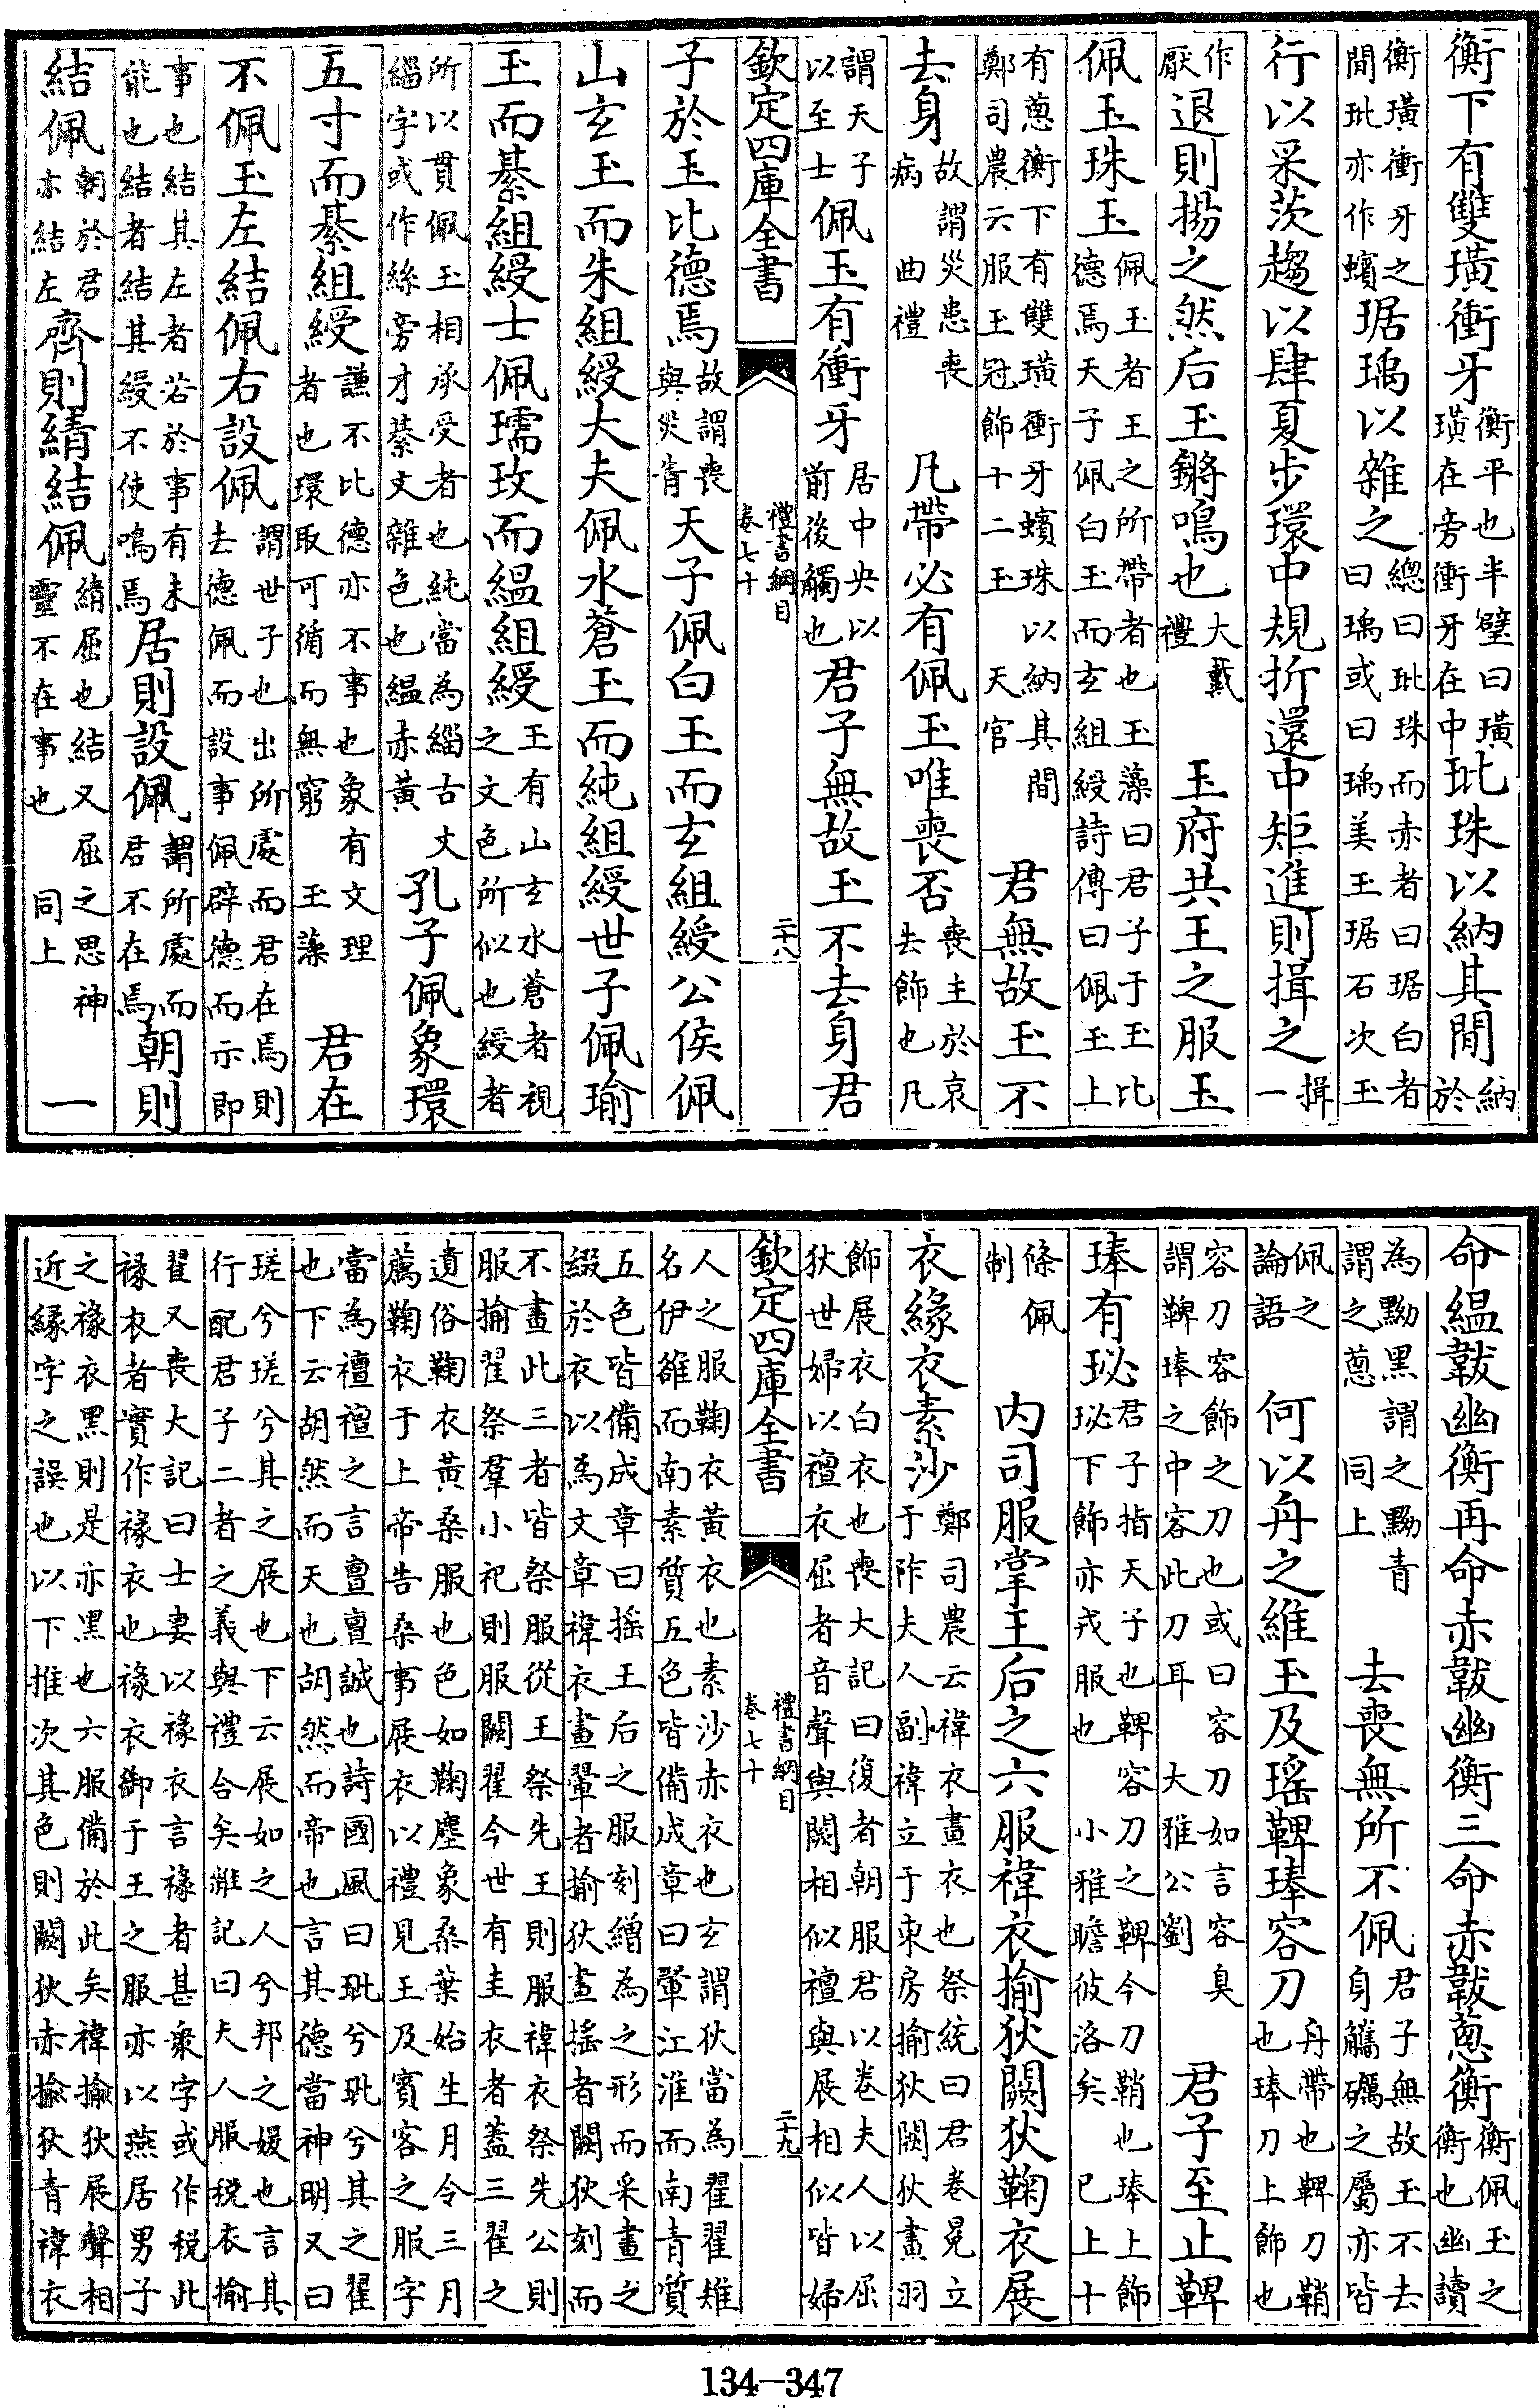 衡下有雙璜衝牙衡平也半璧曰璜璜在旁衝牙在中玭珠以納其間納於
衡璜衝牙之間玭亦作蠙琚瑀以雜之總曰玭珠而赤者曰琚白者曰瑀或曰瑀美玉琚石次玉
行以采茨趨以肆夏步環中規折還中矩進則揖之揖一
作厭退則揚之然后玉鏘鳴也大戴禮 玉府共王之服玉
佩玉珠玉佩玉者王之所帶者也玉藻曰君子于玉比德焉天子佩白玉而玄組綬詩傳曰佩玉上
有蔥衡下有雙璜衝牙蠙珠以納其間鄭司農云服玉冠飾十二玉 天官 君無故玉不
去身故謂災患喪病 曲禮 凡帶必有佩玉唯喪否喪主於哀去飾也凡
謂天子以至士佩玉有衝牙居中央以前後觸也君子無故玉不去身君
欽定四庫全書 禮書綱目 卷七十 二十八
子於玉比德焉故謂喪與災眚天子佩白玉而玄組綬公侯佩
山玄玉而朱組綬大夫佩水蒼玉而純組綬世子佩瑜
玉而綦組綬士佩瓀玟而縕組綬玉有山玄水蒼者視之文色所似也綬者
所以貫佩玉相承受者也純當為緇古文緇字或作絲旁才綦文雜色也縕赤黃 孔子佩象環
五寸而綦組綬謙不比德亦不事也象有文理者也環取可循而無窮 玉藻 君在
不佩玉左結佩右設佩謂世子也出所處而君在焉則去德佩而設事佩辟德而示即
事也結其左者若於事有未能也結者結其綬不使鳴焉居則設佩謂所處而君不在焉朝則
結佩朝於君亦結左齊則綪結佩綪屈也結又屈之思神靈不在事也 同上 一
命縕韍幽衡再命赤韍幽衡三命赤韍蔥衡衡佩玉之衡也幽讀
為黝黑謂之黝青謂之蔥 同上 去喪無所不佩君子無故玉不去身觿礪之屬亦皆
佩之論語 何以舟之維玉及瑤鞞琫容刀舟帶也鞞刀鞘也琫刀上飾也
容刀容飾之刀也或曰容刀如言容臭謂鞞琫之中容此刀耳 大雅公劉 君子至止鞞
琫有珌君子指天子也鞞容刀之鞞今刀鞘也琫上飾珌下飾亦戎服也 小雅瞻彼洛矣 已上十
條佩制 內司服掌王后之六服褘衣揄狄闕狄鞠衣展
衣緣衣素沙鄭司農云褘衣畫衣也祭統曰君卷冕立于阼夫人副褘立于東房揄狄闕狄畫羽
飾展衣白衣也喪大記曰復者朝服君以卷夫人以屈狄世婦以襢衣屈者音聲與闕相似襢與展相似皆婦
欽定四庫全書 禮書綱目 卷七十 二十九
人之服鞠衣黃衣也素沙赤衣也玄謂狄當為翟翟雉名伊雒而南素質五色皆備成章曰翬江淮而南青質
五色皆備成章曰搖王后之服刻繒為之形而采畫之綴於衣以為文章褘衣畫翬者揄狄畫搖者闕狄刻而
不畫此三者皆祭服從王祭先王則服褘衣祭先公則服揄翟祭羣小祀則服闕翟今世有圭衣者蓋三翟之
遺俗鞠衣黃桑服也色如鞠塵象桑葉始生月令三月薦鞠衣于上帝告桑事展衣以禮見王及賓客之服字
當為襢襢之言亶亶誠也詩國風曰玼兮玼兮其之翟也下云胡然而天也胡然而帝也言其德當神明又曰
瑳兮瑳兮其之展也下云展如之人兮邦之媛也言其行配君子二者之義與禮合矣雜記曰夫人服稅衣揄
翟又喪大記曰士妻以褖衣言褖者甚衆字或作稅此褖衣者實作褖衣也褖衣御于王之服亦以燕居男子
之褖衣黑則是亦黑也六服備於此矣褘揄狄展聲相近緣字之誤也以下推次其色則闕狄赤揄狄青褘衣
134-347